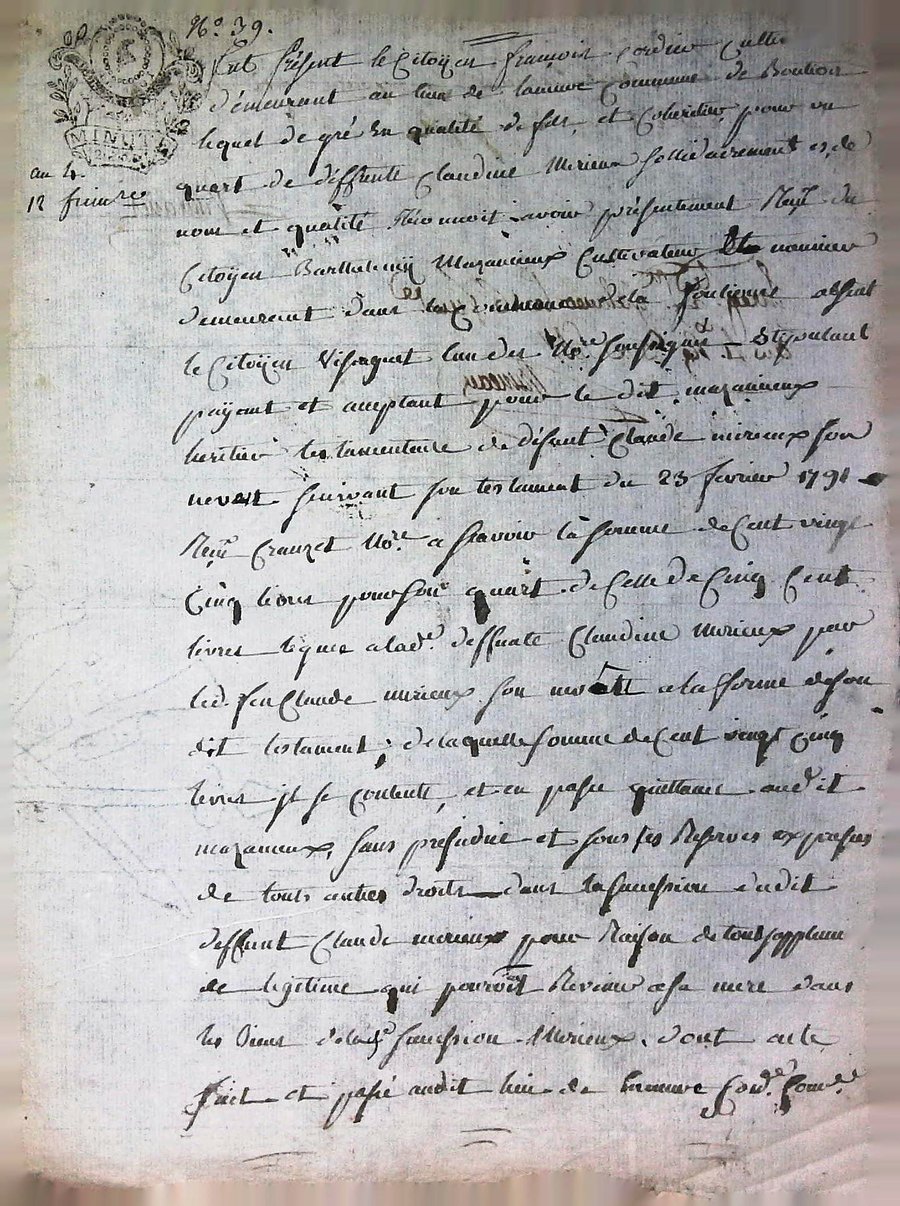 N.º 39.
MINUT
an 4.
12 frimre
fut présent le Citoyen françois Cordier Cultiv
demeurant au lieu de Commune de
lequel de gré En qualité de fils, et Coheritier, pour un
quart de deffunte Claudine Merieux sollidairement es, de
nom et qualité Reconnoit avoir présentement Reçu du
Citoyen Barthelemy Mazanieux Cultivateur
demeurant dans la Commune de la absent
le Citoyen Viscaguet l'un des Nores soussignés Stipulant
payant et acceptant pour le dit mazanieux
heritier testamentaire de défunt Claude mirieux son
neveu suivant son testament du 23 fevrier 1791
Reçu Crauzet Nore a scavoir la somme de Cent vingt
Cinq livres pour son quart de Celle de Cinq Cent
livres leguée a lade deffunte Claudine Merieux par
led. feu Claude mirieux son a la forme de son
dit testament ; de laquelle somme de Cent vingt Cinq
livres jl se contente, et en passe quittance audit
mazanieux, sans prejudice et sous ses Reserves expresses
de touts autres droits dans la sucession dudit
deffunt Claude merieux pour Raison de tout supplem
de legitime qui pouroit Revenir a sa mere dans
les biens de lade sucession Merieux. dont acte
fait et passé audit lieu de